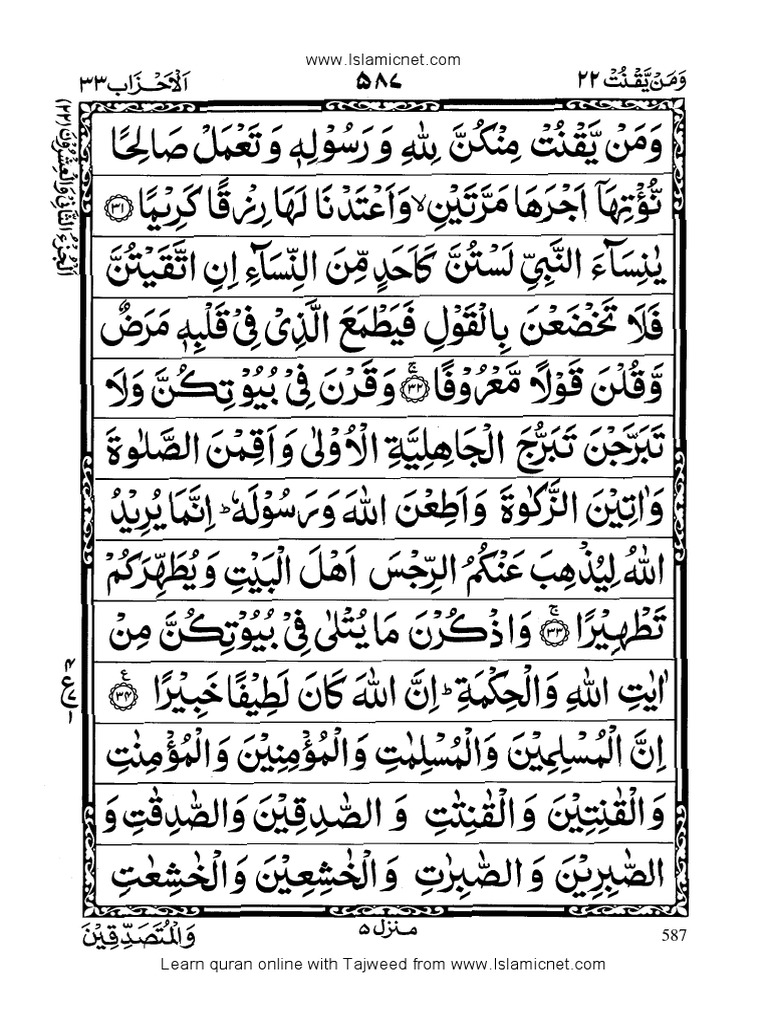 www.Islamicnet.com
وَمَنْ يَّقْنُتْ ٢٢
۵۸۷
اَلْاَحْزَاب ٣٣
اَلْجُزْءُ الثَّانِيْ وَالْعِشْرُوْنَ (٢٢)
وَمَنْ يَّقْنُتْ مِنْكُنَّ لِلّٰهِ وَرَسُوْلِهٖ وَتَعْمَلْ صَالِحًا
نُّؤْتِهَاۤ اَجْرَهَا مَرَّتَيْنِ ۙ وَاَعْتَدْنَا لَهَا رِزْقًا كَرِيْمًا ﴿٣١﴾
يٰنِسَآءَ النَّبِيِّ لَسْتُنَّ كَاَحَدٍ مِّنَ النِّسَآءِ اِنِ اتَّقَيْتُنَّ
فَلَا تَخْضَعْنَ بِالْقَوْلِ فَيَطْمَعَ الَّذِيْ فِيْ قَلْبِهٖ مَرَضٌ
وَّقُلْنَ قَوْلًا مَّعْرُوْفًا ﴿٣٢﴾ۚ وَقَرْنَ فِيْ بُيُوْتِكُنَّ وَلَا
تَبَرَّجْنَ تَبَرُّجَ الْجَاهِلِيَّةِ الْاُوْلٰى وَاَقِمْنَ الصَّلٰوةَ
وَاٰتِيْنَ الزَّكٰوةَ وَاَطِعْنَ اللّٰهَ وَرَسُوْلَهٗ ؕ اِنَّمَا يُرِيْدُ
اللّٰهُ لِيُذْهِبَ عَنْكُمُ الرِّجْسَ اَهْلَ الْبَيْتِ وَيُطَهِّرَكُمْ
تَطْهِيْرًا ﴿٣٣﴾ۚ وَاذْكُرْنَ مَا يُتْلٰى فِيْ بُيُوْتِكُنَّ مِنْ
اٰيٰتِ اللّٰهِ وَالْحِكْمَةِ ؕ اِنَّ اللّٰهَ كَانَ لَطِيْفًا خَبِيْرًا ﴿٣٤﴾ ع
اِنَّ الْمُسْلِمِيْنَ وَالْمُسْلِمٰتِ وَالْمُؤْمِنِيْنَ وَالْمُؤْمِنٰتِ
وَالْقٰنِتِيْنَ وَالْقٰنِتٰتِ وَالصّٰدِقِيْنَ وَالصّٰدِقٰتِ وَ
الصّٰبِرِيْنَ وَالصّٰبِرٰتِ وَالْخٰشِعِيْنَ وَالْخٰشِعٰتِ
587
مـنزل ۵
وَالْمُتَصَدِّقِيْنَ
Learn quran online with Tajweed from www.Islamicnet.com